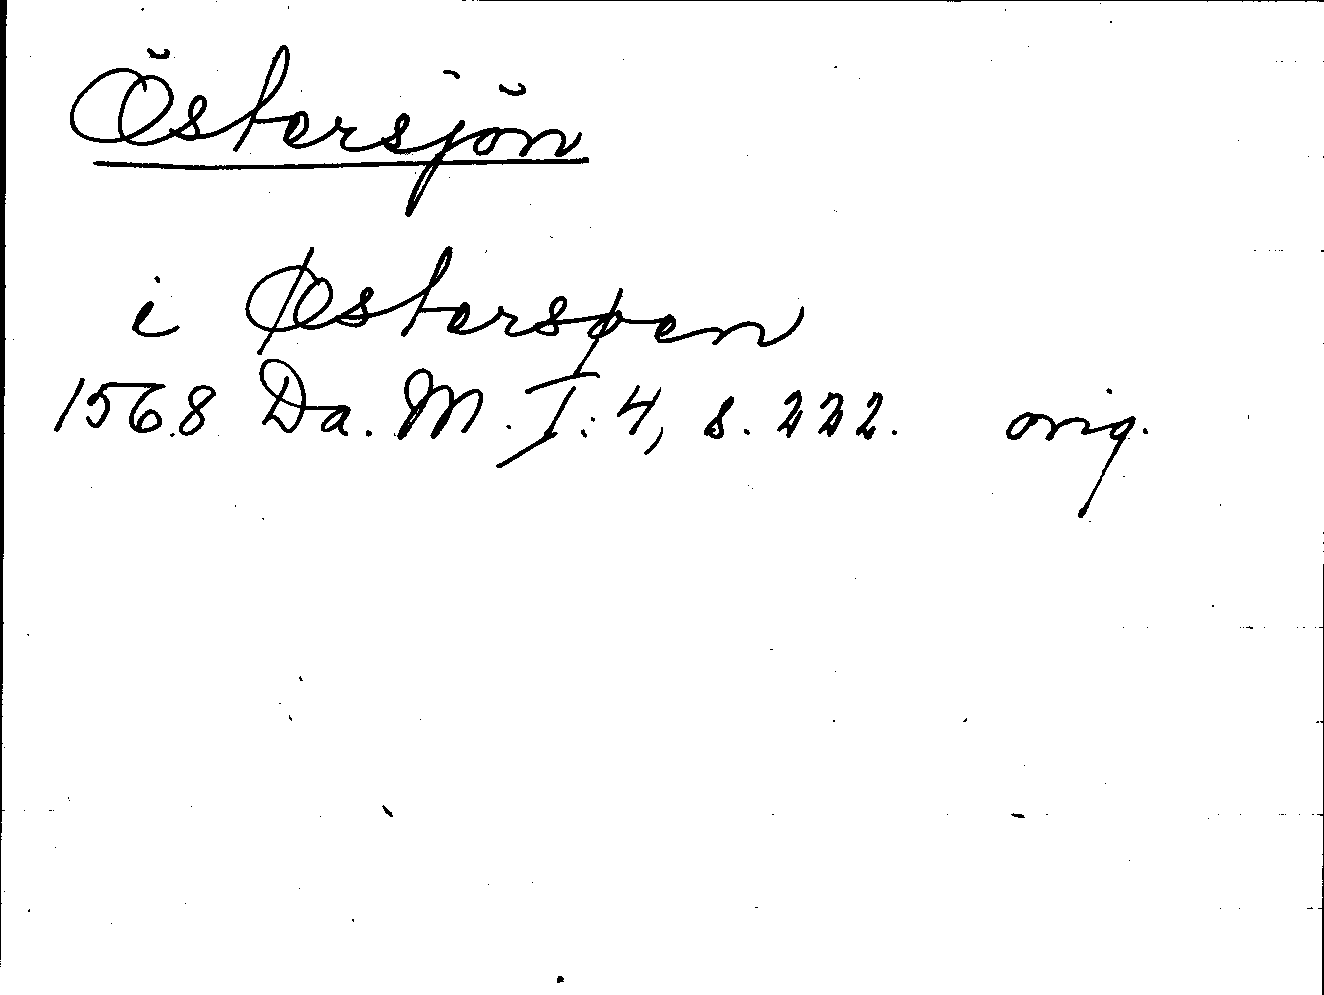 Östersjön
i Østersøen
1568 Da. M. I: 4, s. 222. orig.